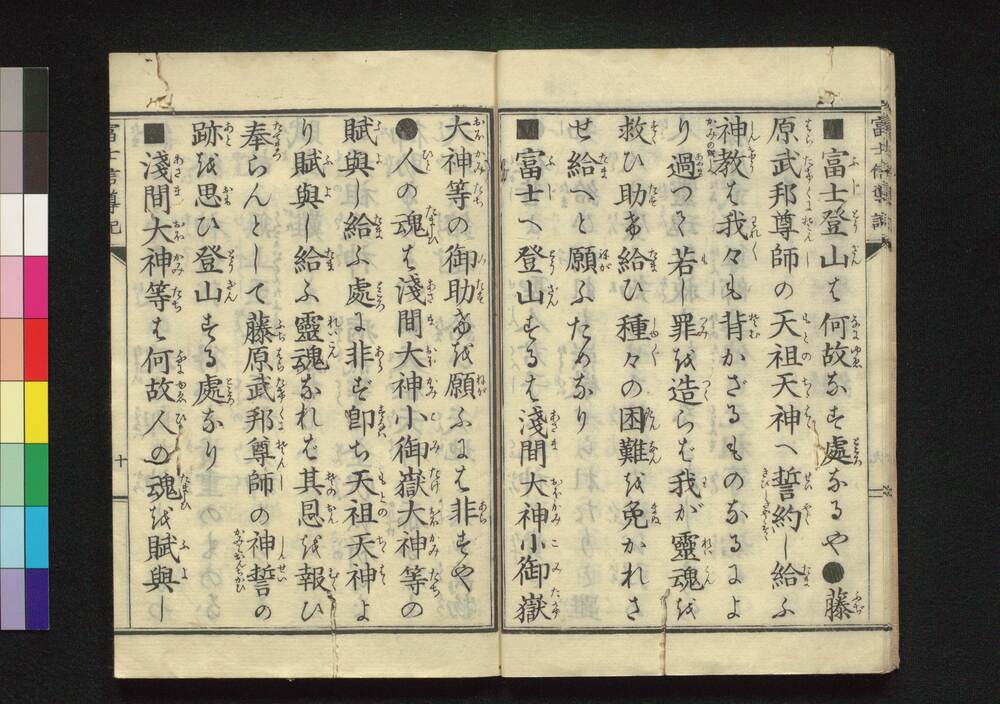 ■富士登山は何故なす處なるや●藤
原武邦尊師の天祖天神へ誓約し給ふ
神教は我々も背かざるものなるによ
り過つて若し罪を造らば我が靈魂を
救ひ助け給ひ種々の困難を免かれさ
せ給へと願ふためなり
■富士へ登山するは淺間大神小御嶽
大神等の御助けを願ふには非ずや
●人の魂は淺間大神小御嶽大神等の
賦與し給ふ處に非ず卽ち天祖天神よ
り賦與し給ふ靈魂なれば其恩を報ひ
奉らんとして藤原武邦尊師の神誓の
跡を思ひ登山する處なり
■淺間大神等は何故人の魂を賦與し
十